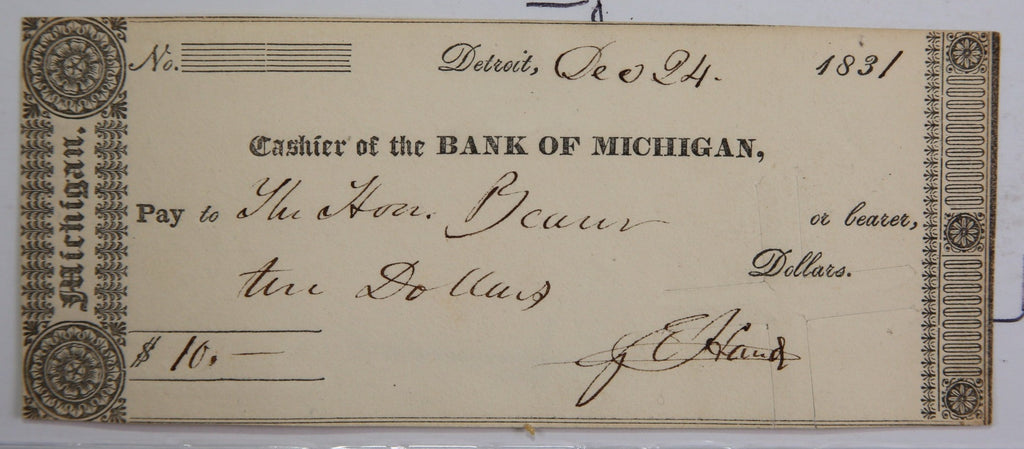 Michigan.
No. Detroit, Dec 24. 1831
Cashier of the BANK OF MICHIGAN,
Pay to The Hon. Bearer or bearer,
ten Dollars Dollars.
$ 10.—